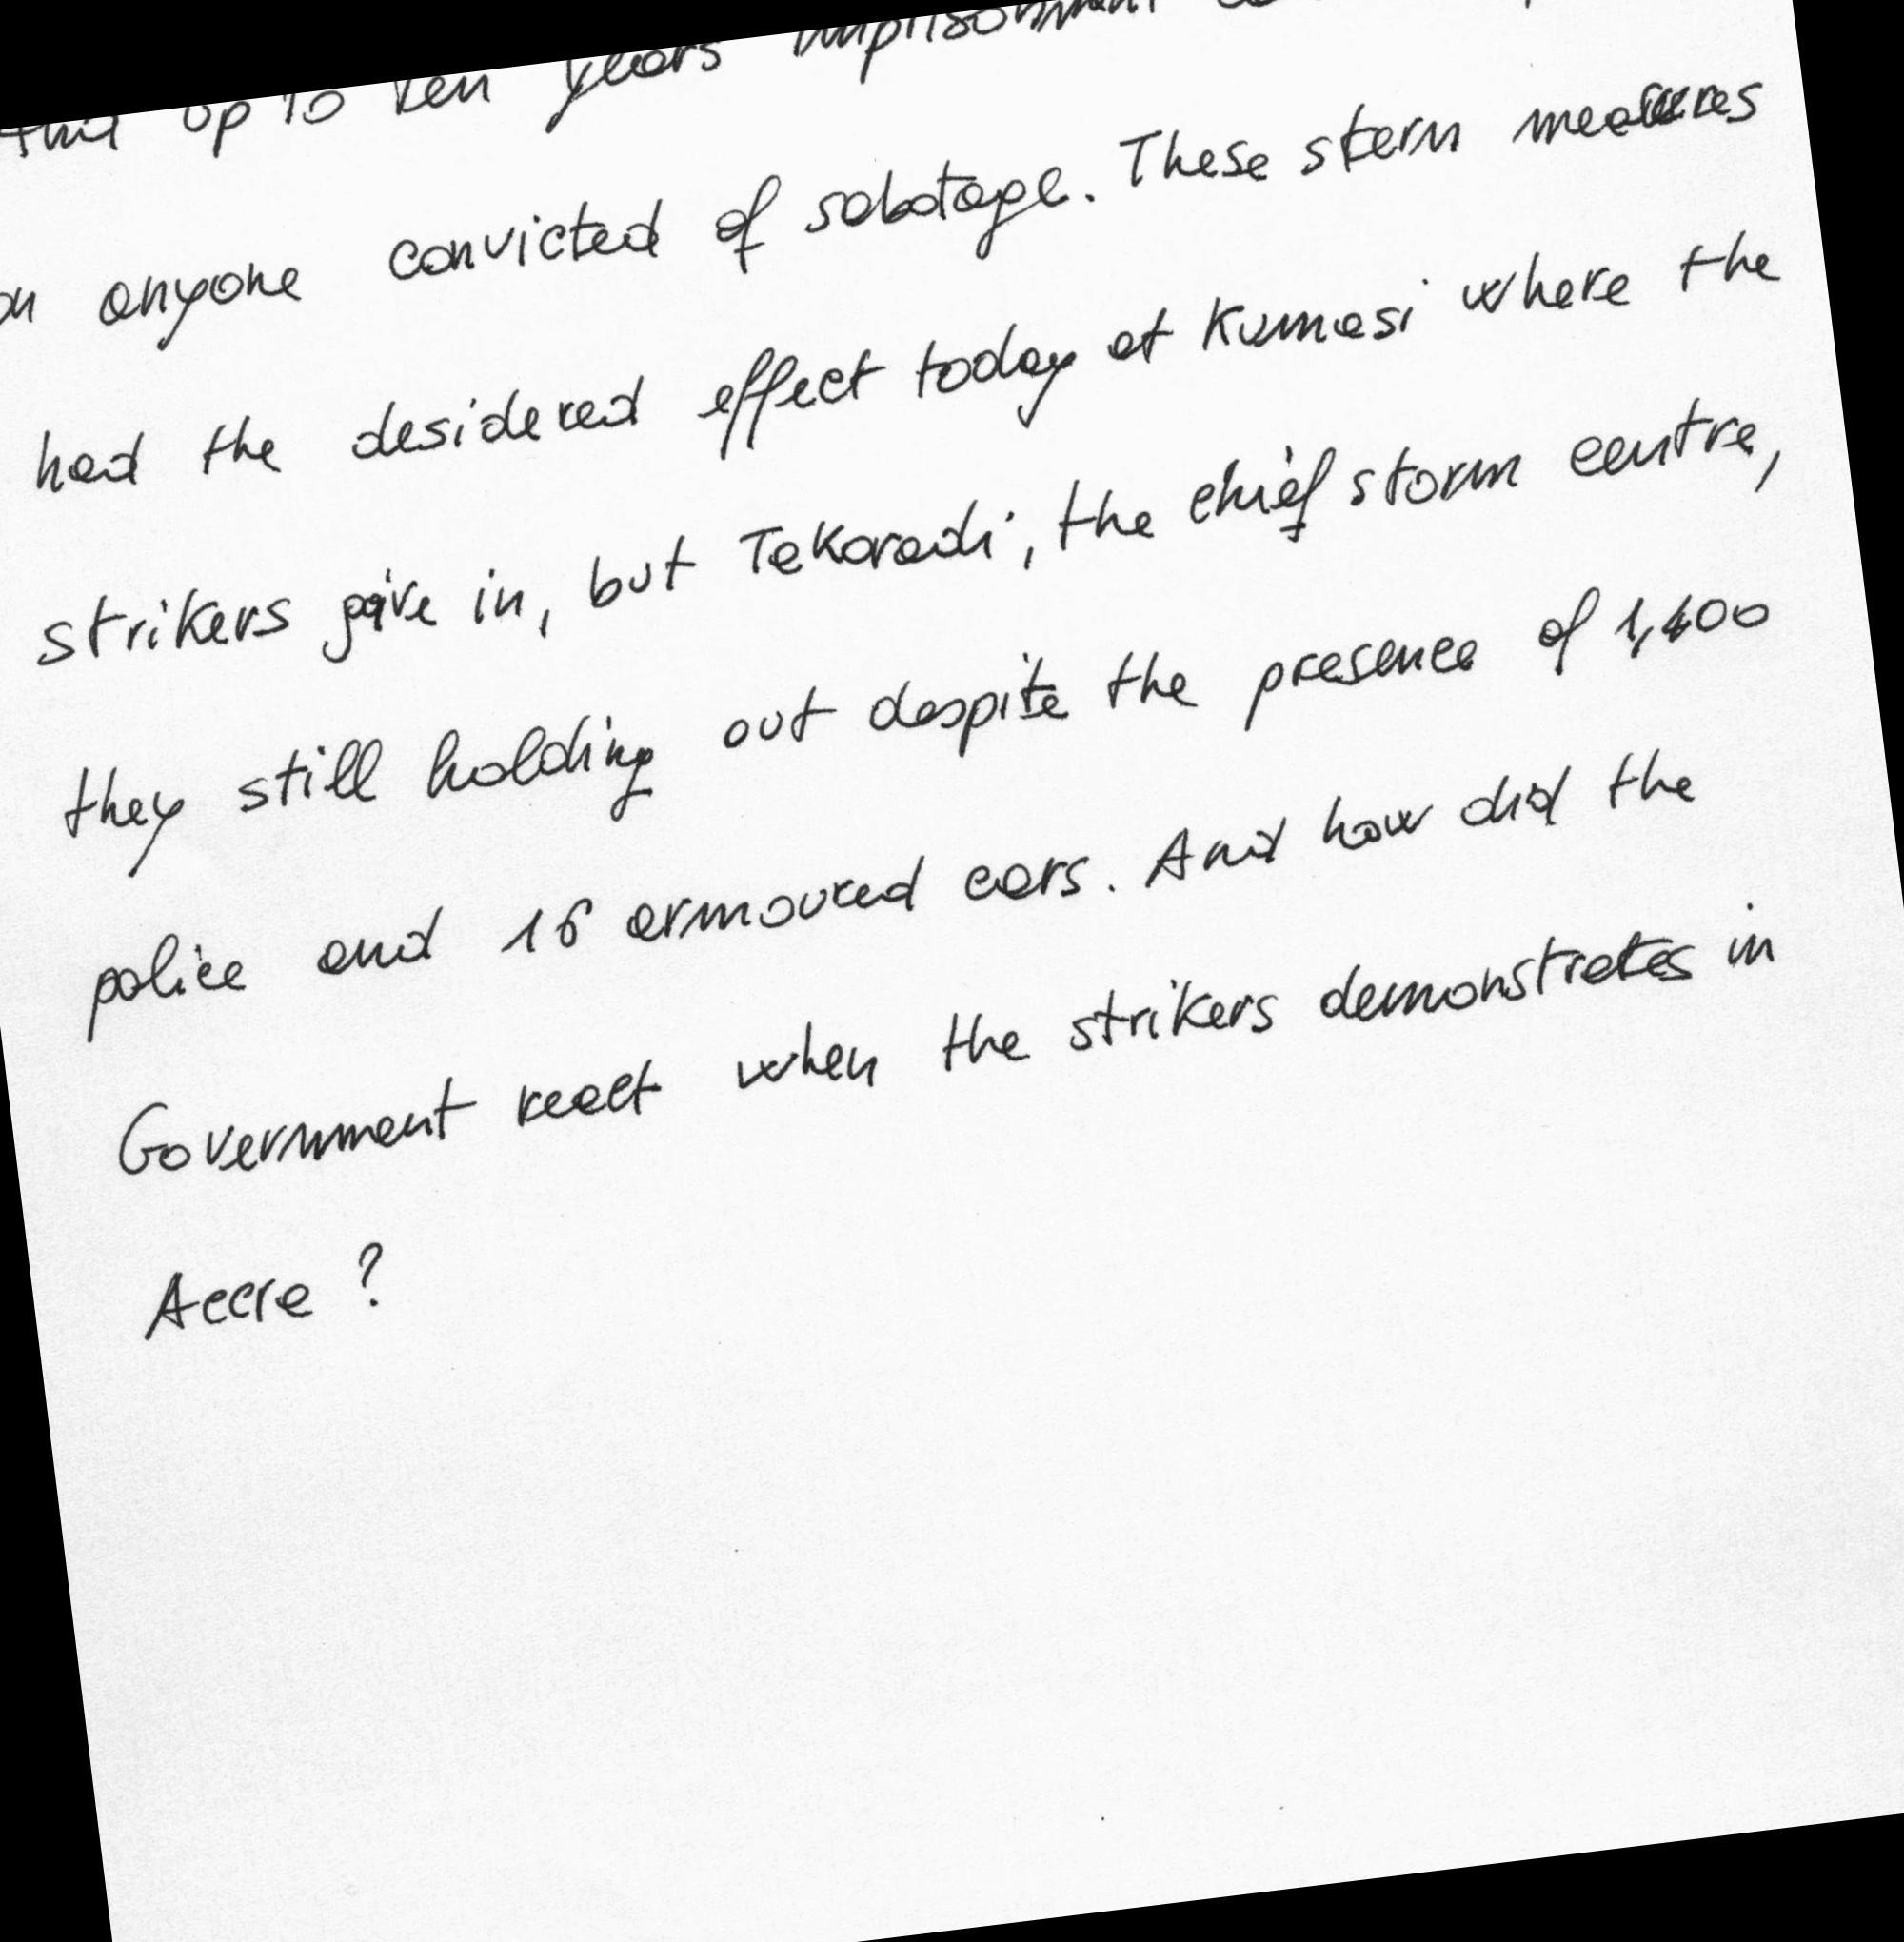 up to ten years imprisonment
on anyone convicted of sabotage. These stern measures
had the desidered effect today at Kumasi where the
strikers gave in, but Takoradi, the chief storm centre,
they still holding out despite the presence of 1,400
police and 16 armoured cars. And how did the
Government react when the strikers demonstrates in
Accra?